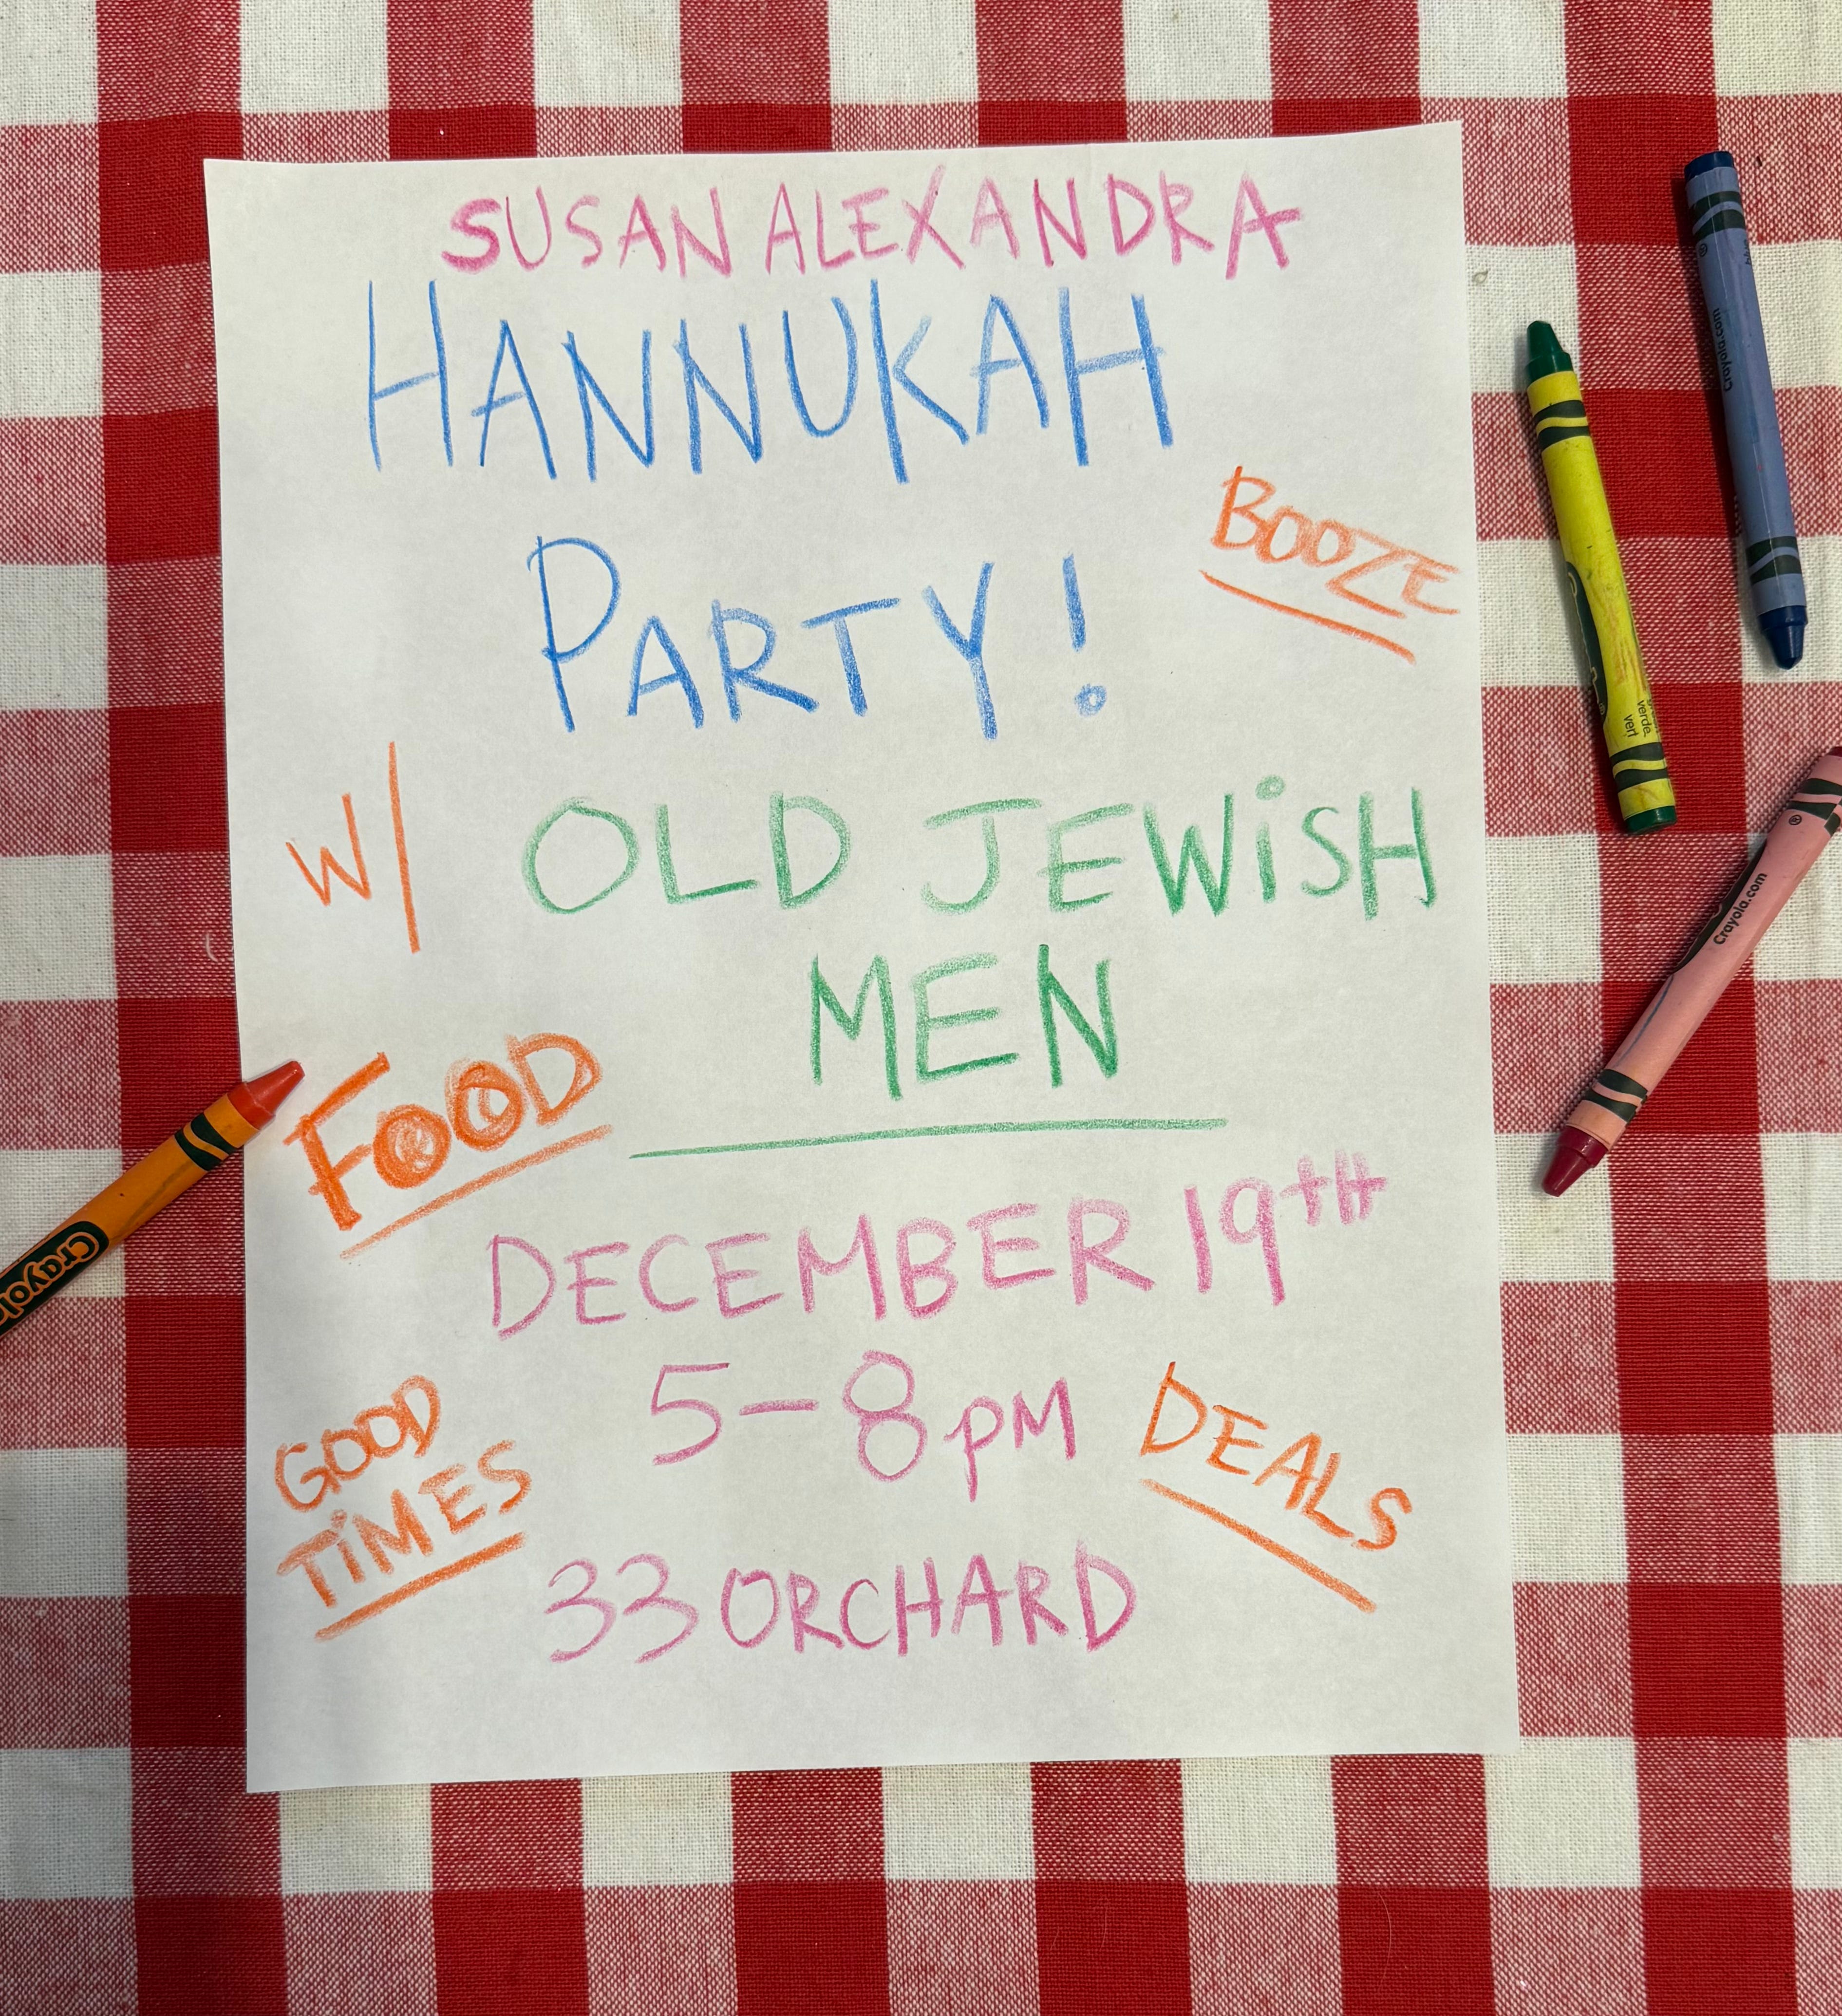 SUSAN ALEXANDRA
HANNUKAH
PARTY!
BOOZE
W/ OLD JEWiSH
MEN
FOOD
DECEMBER 19TH
5-8PM
GOOD
TiMES
DEALS
33 ORCHARD
Crayola.com
verde.
vert
Crayola.com
Crayola